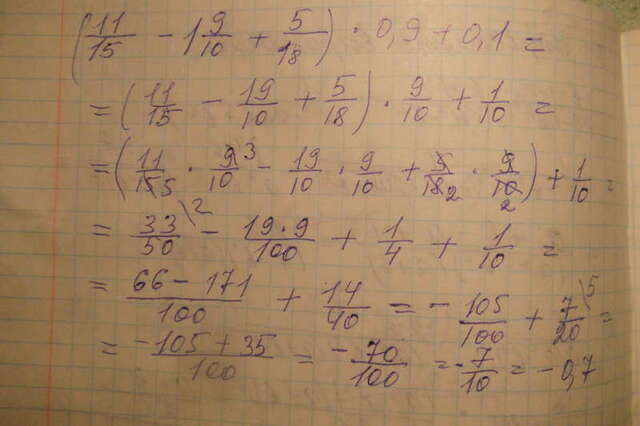 (11/15 - 1 9/10 + 5/18) · 0,9 + 0,1 =
= (11/15 - 19/10 + 5/18) · 9/10 + 1/10 =
= (11/15 5 · 9 3/10 - 19/10 · 9/10 + 5/18 2 · 9/10 2) + 1/10 =
= 33/50 \2 - 19·9/100 + 1/4 + 1/10 =
= 66-171/100 + 14/40 = - 105/100 + 7/20 \5 =
= -105+35/100 = -70/100 = -7/10 = -0,7